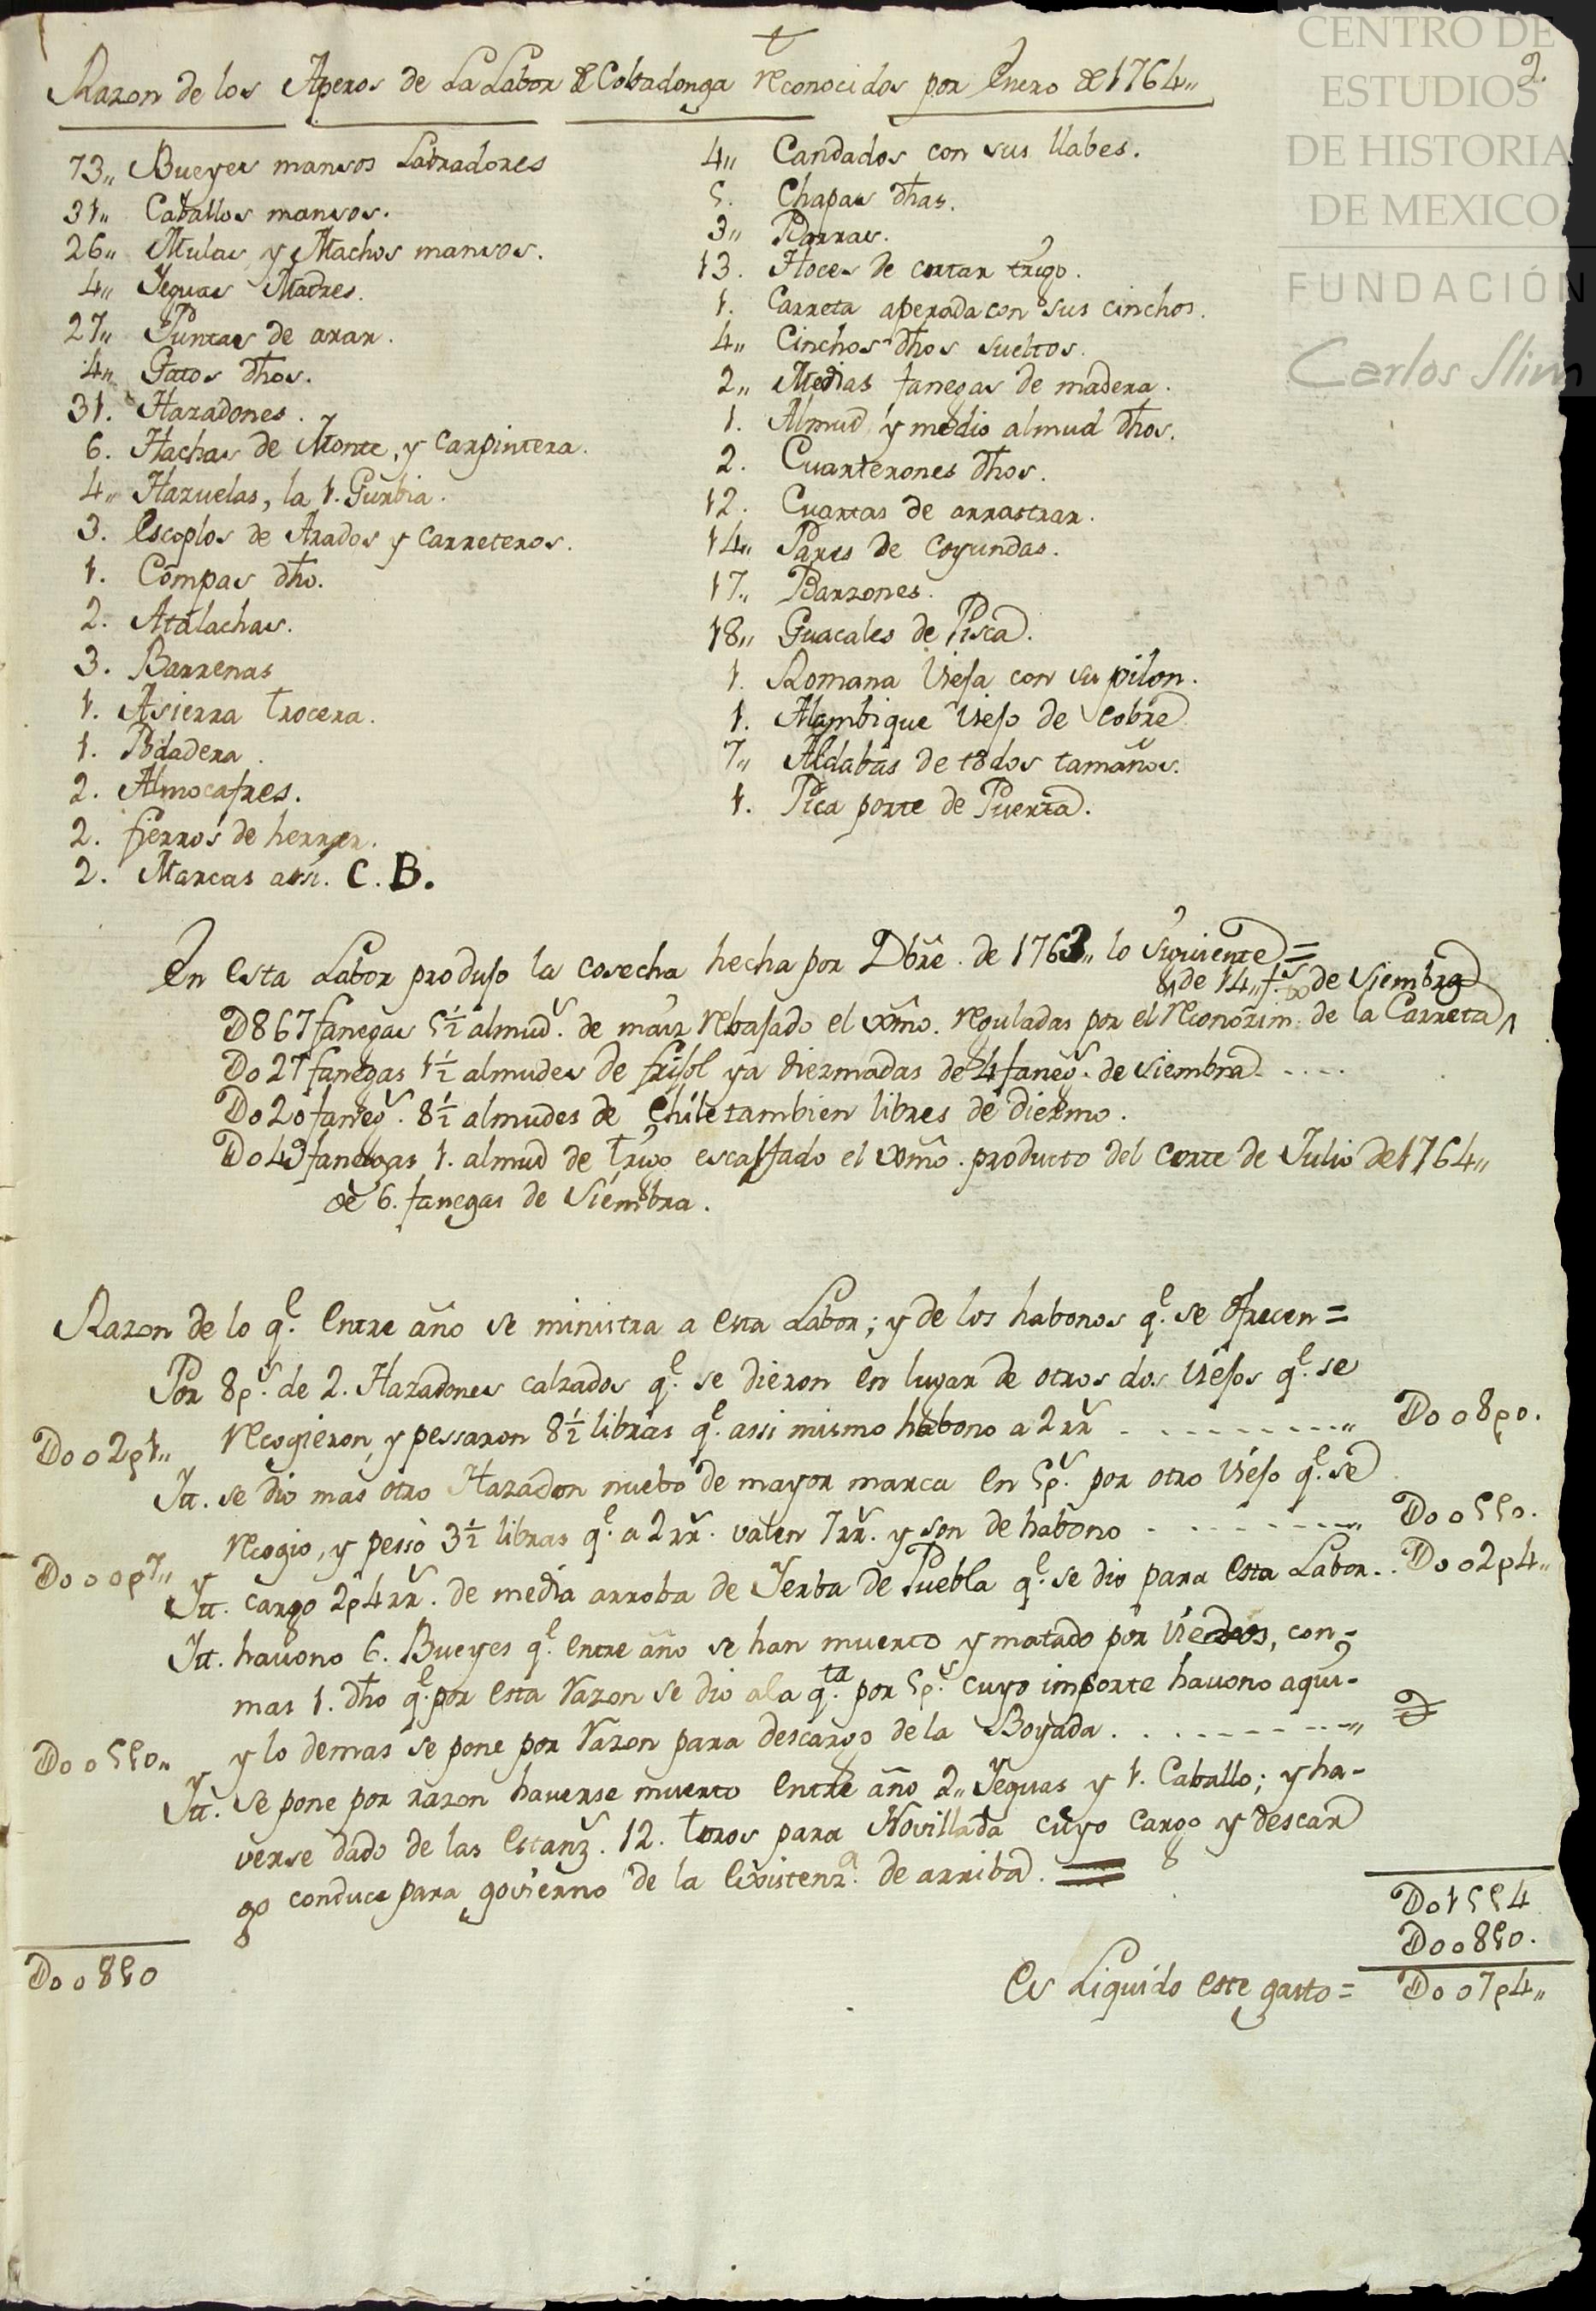 CENTRO DE
ESTUDIOS
DE HISTORIA
DE MEXICO
FUNDACIÓN
Carlos Slim
2.
Razon de los Aperos de La Labor de Cobadonga reconocidos por Enero de 1764,,
73,, Bueyes mansos Labradores
31,, Caballos mansos.
26,, Mulas, y Machos mansos.
4,, Yeguas Madres.
27,, Puntas de arar.
4,, Gatos dhos.
31. Hazadones.
6. Hachas de Monte, y Carpintera.
4,, Hazuelas, la 1. Gurbia.
3. Escoplos de Arados y Carreteros.
1. Compas dho.
2. Atalachas.
3. Barrenas
1. Asierra trocera.
1. Bdadera.
2. Almocafres.
2. fierros de herrar.
2. Marcas assi. C. B.
4,, Candados con sus llabes.
5. Chapas dhas.
3,, Barras.
13. Hoces de cortar trigo.
1. Carreta aperada con sus cinchos.
4,, Cinchos dhos sueltos.
2,, Medias fanegas de madera.
1. Almud y medio almud dhos.
2. Cuarterones dhos.
12. Cuartas de arrastrar.
14,, Pares de Coyundas.
17,, Barzones.
18,, Guacales de Pisca.
1. Romana Vieja con su pilon.
1. Alambique Viejo de Cobre
7,, Aldabas de todos tamaños.
1. Pica porte de Puerta.
En esta Labor produjo la cosecha hecha por Dbre. de 1763,, lo Siguiente =
de 14,, fs. de Siembra
D867 fanegas 5½ almuds. de maiz rebajado el Dmo. reguladas por el reconozim. de la Carreta
Do27 fanegas 1½ almudes de frijol ya diezmadas de 4 fanegs. de Siembra. ....
Do20 fanegs. 8½ almudes de Chile tambien libres de diezmo.
Do49 fanegas 1. almud de trigo escalfado el Dmo. producto del Corte de Julio de 1764,,
de 6. fanegas de Siembra.
Razon de lo qe. Entre año se ministra a esta Labor; y de los habonos qe. se ofrecen =
Por 8ps. de 2. Hazadones calzados qe. se dieron en lugar de otros dos Viejos qe. se
recogieron, y pessaron 8½ libras qe. assi mismo habono a 2 rrs ........,, Doo8p0.
Doo2p1,,
Itt. se dio mas otro Hazadon nuebo de mayor marca en 5ps. por otro Viejo qe. se
recogio, y pessó 3½ libras qe. a 2 rrs. valen 7 rrs. y son de habono ........,, Doo5p0.
Dooop7,,
Itt. cargo 2p4 rrs. de media arroba de Yerba de Puebla qe. se dio para esta Labor.. Doo2p4,,
Itt. hauono 6. Bueyes qe. entre año se han muerto y matado por Viejos, con-
mas 1. dho qe. por esta razon se dio a la qta. por 5ps. cuyo importe hauono aqui-
y lo demas se pone por razon para descargo de la Boyada. ........,,
Doo5p0,,
Itt. se pone por razon hauerse muerto entre año 2,, Yeguas y 1. Caballo; y ha-
verse dado de las Estanzs. 12. toros para Novillada cuyo Cargo y descar
go conduce para govierno de la Existenza. de arriba. =
Do15p4
Doo8p0.
Doo8p0
Es Liquido este gasto = Doo7p4,,